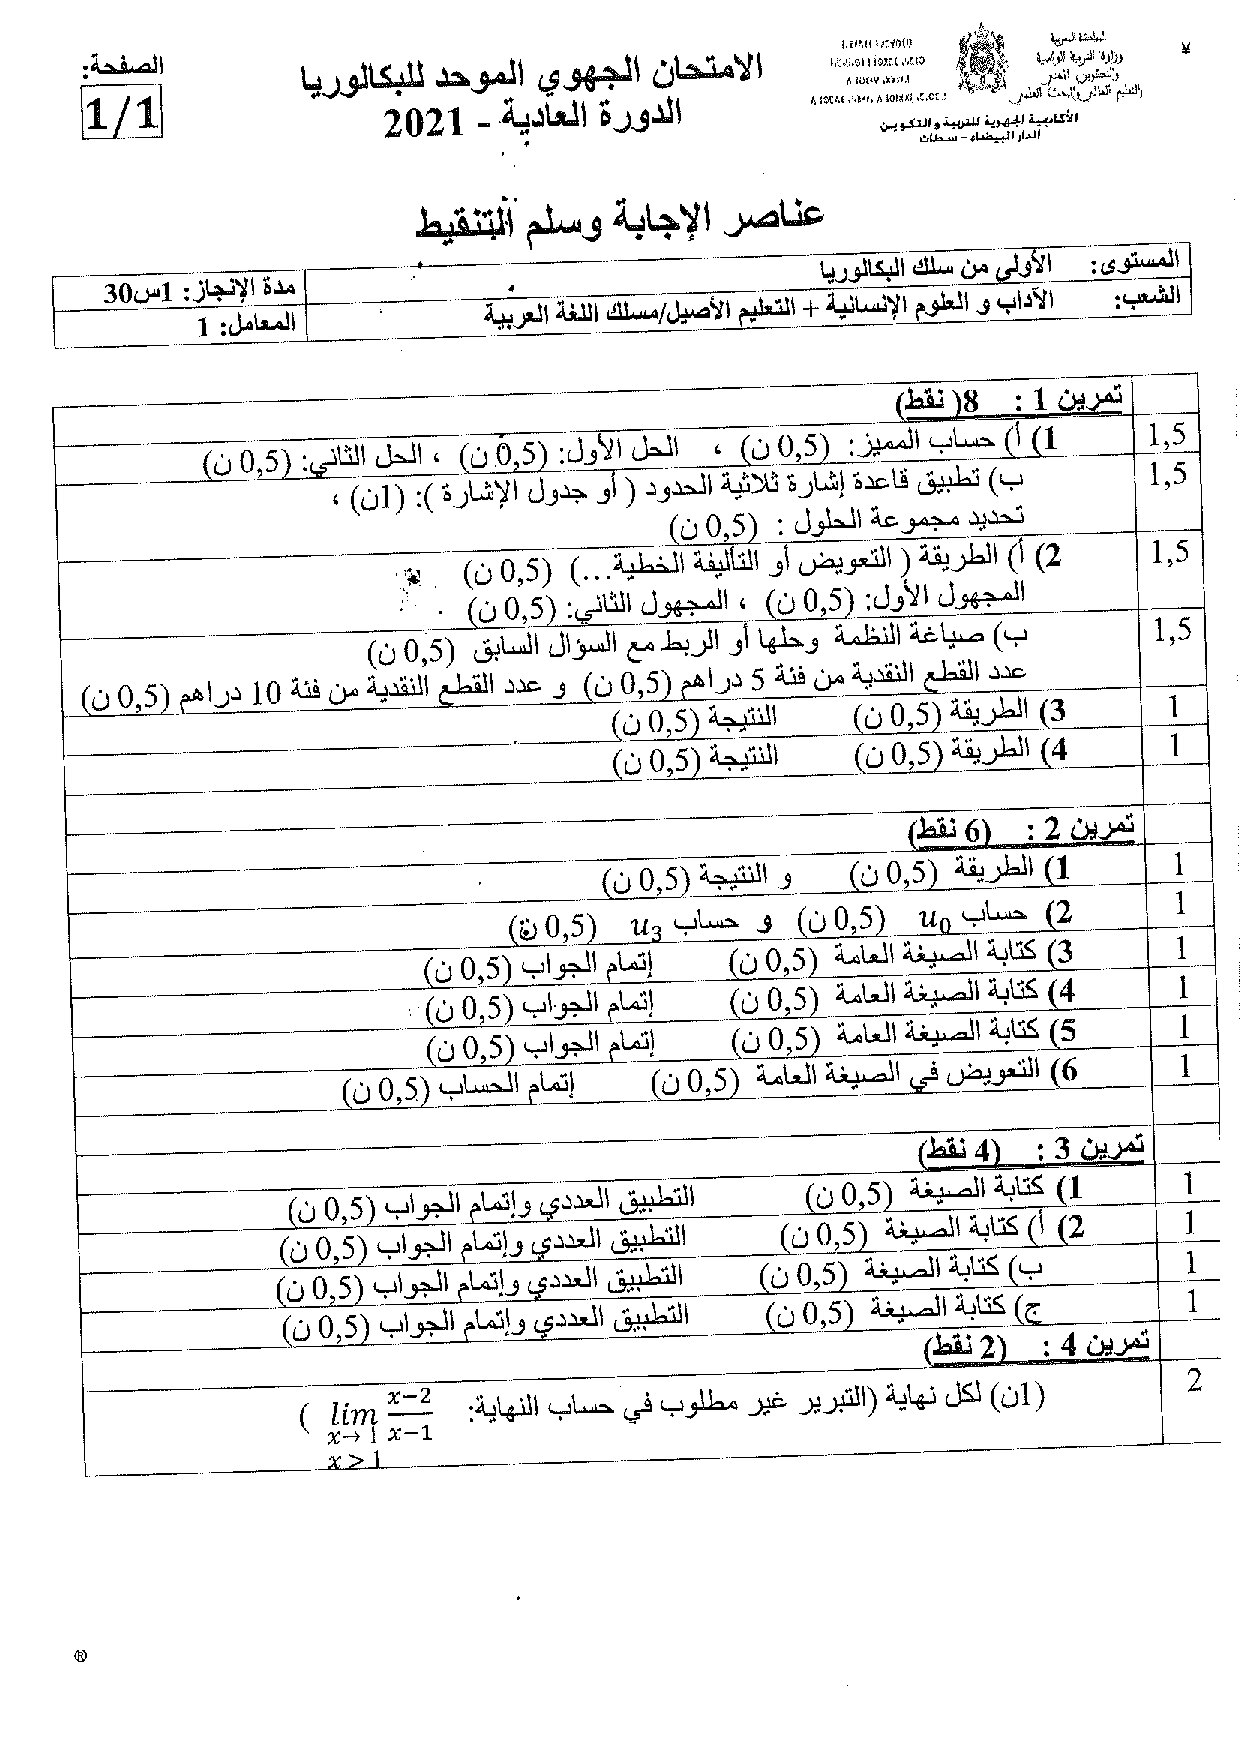 المملكة المغربية
وزارة التربية الوطنية
والتكوين المهني
والتعليم العالي والبحث العلمي
الأكاديمية الجهوية للتربية والتكوين
الدار البيضاء – سطات
الامتحان الجهوي الموحد للبكالوريا
الدورة العادية - 2021
الصفحة:
1/1
عناصر الإجابة وسلم التنقيط
المستوى: الأولى من سلك البكالوريا
مدة الإنجاز: 1س30
الشعب: الآداب و العلوم الإنسانية + التعليم الأصيل/مسلك اللغة العربية
المعامل: 1
تمرين 1 : 8( نقط)
1,5 1) أ) حساب المميز: (0,5 ن) ، الحل الأول: (0,5 ن) ، الحل الثاني: (0,5 ن)
1,5 ب) تطبيق قاعدة إشارة ثلاثية الحدود ( أو جدول الإشارة ): (1ن) ،
تحديد مجموعة الحلول : (0,5 ن)
1,5 2) أ) الطريقة ( التعويض أو التأليفة الخطية...) (0,5 ن)
المجهول الأول: (0,5 ن) ، المجهول الثاني: (0,5 ن)
1,5 ب) صياغة النظمة وحلها أو الربط مع السؤال السابق (0,5 ن)
عدد القطع النقدية من فئة 5 دراهم (0,5 ن) و عدد القطع النقدية من فئة 10 دراهم (0,5 ن)
1 3) الطريقة (0,5 ن) النتيجة (0,5 ن)
1 4) الطريقة (0,5 ن) النتيجة (0,5 ن)
تمرين 2 : (6 نقط)
1 1) الطريقة (0,5 ن) و النتيجة (0,5 ن)
1 2) حساب u₀ (0,5 ن) و حساب u₃ (0,5 ن)
1 3) كتابة الصيغة العامة (0,5 ن) إتمام الجواب (0,5 ن)
1 4) كتابة الصيغة العامة (0,5 ن) إتمام الجواب (0,5 ن)
1 5) كتابة الصيغة العامة (0,5 ن) إتمام الجواب (0,5 ن)
1 6) التعويض في الصيغة العامة (0,5 ن) إتمام الحساب (0,5 ن)
تمرين 3 : (4 نقط)
1 1) كتابة الصيغة (0,5 ن) التطبيق العددي وإتمام الجواب (0,5 ن)
1 2) أ) كتابة الصيغة (0,5 ن) التطبيق العددي وإتمام الجواب (0,5 ن)
1 ب) كتابة الصيغة (0,5 ن) التطبيق العددي وإتمام الجواب (0,5 ن)
1 ج) كتابة الصيغة (0,5 ن) التطبيق العددي وإتمام الجواب (0,5 ن)
تمرين 4 : (2 نقط)
2 (1ن) لكل نهاية (التبرير غير مطلوب في حساب النهاية: lim x−2 / x−1 )
x→1
x>1